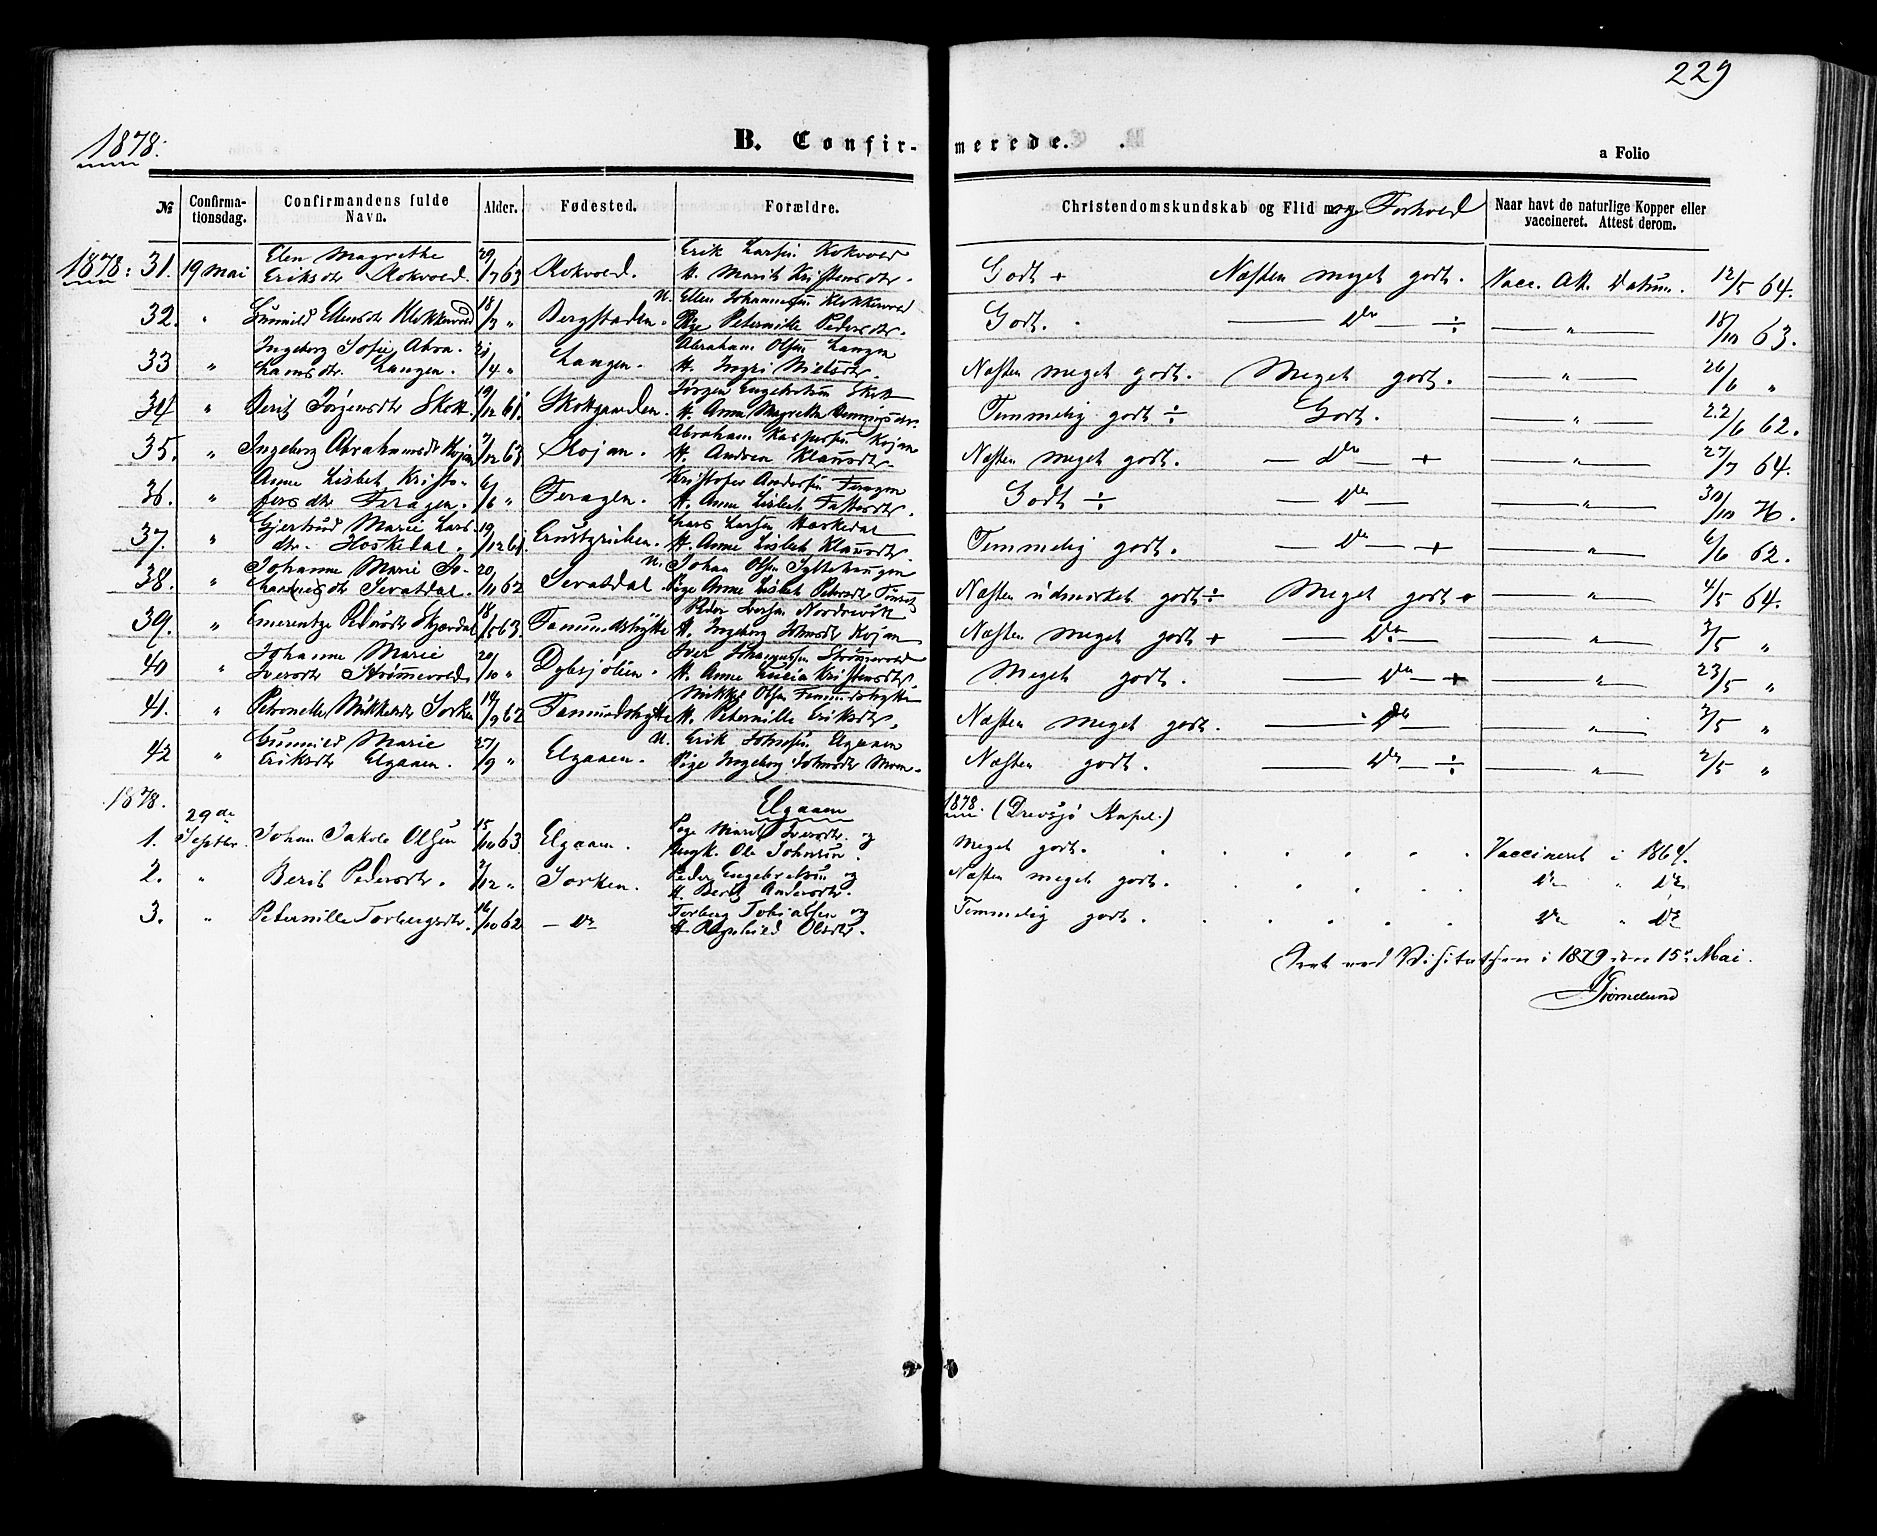 229
1878.
B. Confir-merede.
a Folio
№ Confirma-tionsdag. Confirmandens fulde Navn. Alder. Fødested. Forældre. Christendomskundskab og Flid m. og Forhold Naar havt de naturlige Kopper eller vaccineret. Attest derom.
Elen Magrethe 29 Erik Larsen Kokvold
1878: 31. 19 Mai Eriksdtr Kokvold. /7 63 Kokvold. H. Marit Kristensdtr. Godt + Næsten meget godt. Vacc. Att. Datum. 12/5 64.
18 U. Ellen Johannesen Klokkervold
32. " Gunild Ellensdtr Klokkervold /3 " Bergstaden. Pige Peternille Pedersdtr. Godt. — Do ÷ — " — 18/10 63.
Ingeborg Sofie Abra- 21 Abraham Olsen Langen
33 " hamsdtr. Langen. /4 " Langen. H. Ingri Nielsdtr. Næsten meget godt. Meget godt. — " — 26/6 "
19 Jørgen Engebretsen Skott
34 " Berit Jørgensdtr Skott. /12 61. Skottgaarden. H. Anne Magrethe Henningsdtr. Temmelig godt ÷ Godt. — " — 22/6 62.
Abraham Kaspersen Kojan
35. " Ingeborg Abrahamsdtr Kojan /12 63 Kojan. H. Andrea Klausdtr. Næsten meget godt. — Do — + — " — 27/7 64.
Anne Lisbet Kristo- 6 Kristofer Andersen Feragen
36. " fersdtr Feragen. /6 " Feragen. H. Anne Lisbet Tattersdtr. Godt ÷ — Do — — " — 30/10 76.
Gjertrud Marie Lars- 19 Lars Larsen Hoskedal
37. " dtr. Hoskedal. /12 61. Ernstgruben. H. Anne Lisbet Klausdtr. Temmelig godt. — Do — + — " — 6/6 62.
Johanne Marie Jo- 20 U. Johan Olsen Sylthaugen
38. " hannesdtr Sevatdal. /11 62 Sevatdal. Pige Anne Lisbet Petersdtr Næsten udmærket godt ÷ Meget godt + — " — 4/5 64.
18 Peder Iversen Nordrevik
39. " Emerentze Pedersdtr /5 63. Fæmundshytte H. Ingeborg Johnsdtr Kojan Næsten meget godt + — Do — — " — 3/5 "
Johanne Marie 20 Iver Johannesen Strømevold
40 " Iversdtr Strømevold. /10 " Dybsjølien. H. Anne Lucia Kristensdtr Meget godt. — Do — + — " — 23/5 "
14 Mikkel Olsen Fæmundshytte
41. " Petronelle Mikkelsdtr Sorken /9 62 Fæmundshytte H. Peternille Eriksdtr. Næsten meget godt. — Do — — " — 3/5 "
Gunild Marie 27 U. Erik Johnsen Elgaaen
42 " Eriksdtr Elgaaen. /9 " Elgaaen. Pige Ingeborg Johnsdtr Moen. Næsten godt. — Do — ÷ — " — 2/5 "
1878. Elgaaen 1878. (Drevsjø Kapel.)
29de 15 Pige Marit Iversdtr. og
1. Septbr. Johan Jakob Olsen /10 63 Elgaaen. Ungk. Ole Johnsen. Meget godt. Vaccineret i 1864.
Peder Engebretsen og
2. " Berit Pedersdtr. /12 " Sorken. H. Berit Andersdtr. Næsten meget godt. Do " Do
16 Torberg Tobiassen og
3. " Peternille Torbergsdtr. /10 62 — Do H. Ragnhild Olsdtr. Temmelig godt. Do " Do
Seet ved Visitatsen i 1879 den 15de Mai.